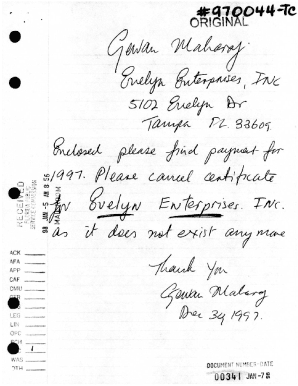 #970044-TC
ORIGINAL
Gowan Maharaj
Evelyn Enterprises, INC
5102 Evelyn Dr
Tampa FL 33609
Enclosed please find payment for
1997. Please cancel certificate
for Evelyn Enterprises. Inc.
as it does not exist any more
Thank You
Gowan Maharaj
Dec 30, 1997.
RECEIVED
98 JAN -5 AM 8 56
MAILROOM
ACK
AFA
APP
CAF
CMU
CTR
EAG
LEG
LIN
OPC
RCH 1
SEC
WAS
OTH
DOCUMENT NUMBER-DATE
00341 JAN-7 98